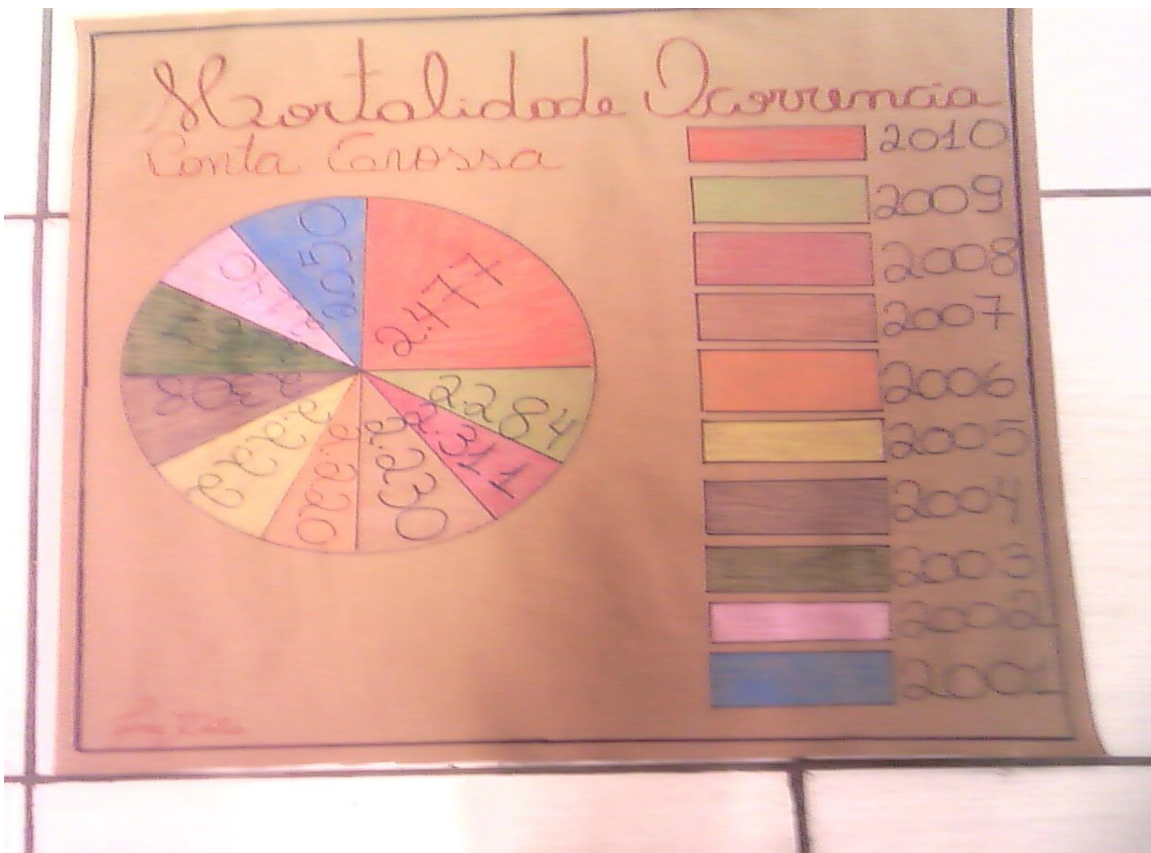 Mortalidade Ocorrencia
Ponta Grossa
2010
2009
2008
2007
2006
2005
2004
2003
2002
2001
2050
2.477
2.284
2.311
2.230
2.220
2.222
2.308